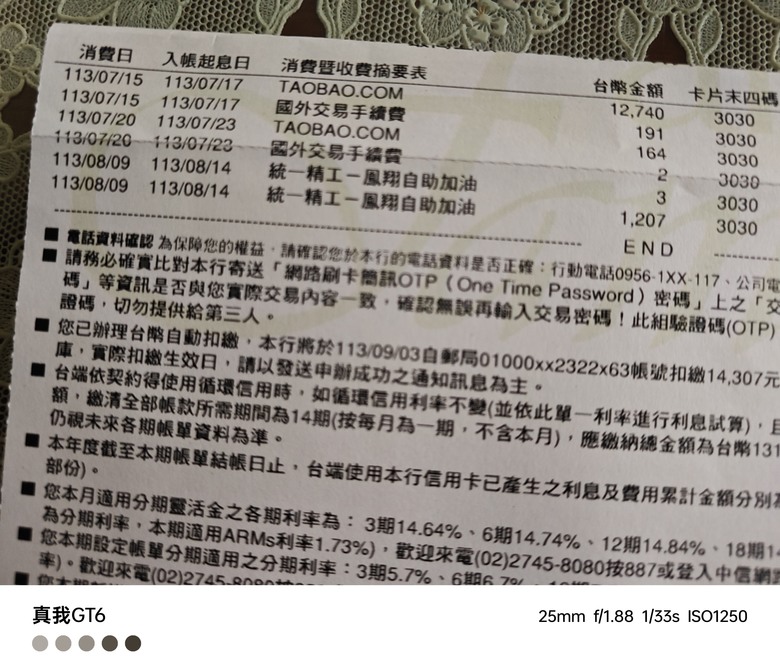 消費日 入帳起息日 消費暨收費摘要表 台幣金額 卡片末四碼
113/07/15 113/07/17 TAOBAO.COM 12,740 3030
113/07/15 113/07/17 國外交易手續費 191 3030
113/07/20 113/07/23 TAOBAO.COM 164 3030
113/07/20 113/07/23 國外交易手續費 2 3030
113/08/09 113/08/14 統一精工－鳳翔自助加油 3 3030
113/08/09 113/08/14 統一精工－鳳翔自助加油 1,207 3030
END
■ 電話資料確認 為保障您的權益，請確認您於本行的電話資料是否正確：行動電話0956-1XX-117、公司電
■ 請務必確實比對本行寄送「網路刷卡簡訊OTP（One Time Password）密碼」上之「交
碼」等資訊是否與您實際交易內容一致，確認無誤再輸入交易密碼！此組驗證碼(OTP)
證碼，切勿提供給第三人。
■ 您已辦理台幣自動扣繳，本行將於113/09/03自郵局01000xx2322x63帳號扣繳14,307元
庫，實際扣繳生效日，請以發送申辦成功之通知訊息為主。
■ 台端依契約得使用循環信用時，如循環信用利率不變(並依此單一利率進行利息試算)，且
額，繳清全部帳款所需期間為14期(按每月為一期，不含本月)，應繳納總金額為台幣131
仍視未來各期帳單資料為準。
■ 本年度截至本期帳單結帳日止，台端使用本行信用卡已產生之利息及費用累計金額分別為
部份)。
■ 您本月適用分期靈活金之各期利率為：3期14.64%、6期14.74%、12期14.84%、18期14
為分期利率，本期適用ARMs利率1.73%)，歡迎來電(02)2745-8080按887或登入中信網路
■ 您本期設定帳單分期適用之分期利率：3期5.7%、6期6.7%、
率)。歡迎來電(02)2745-8080按
真我GT6
25mm f/1.88 1/33s ISO1250